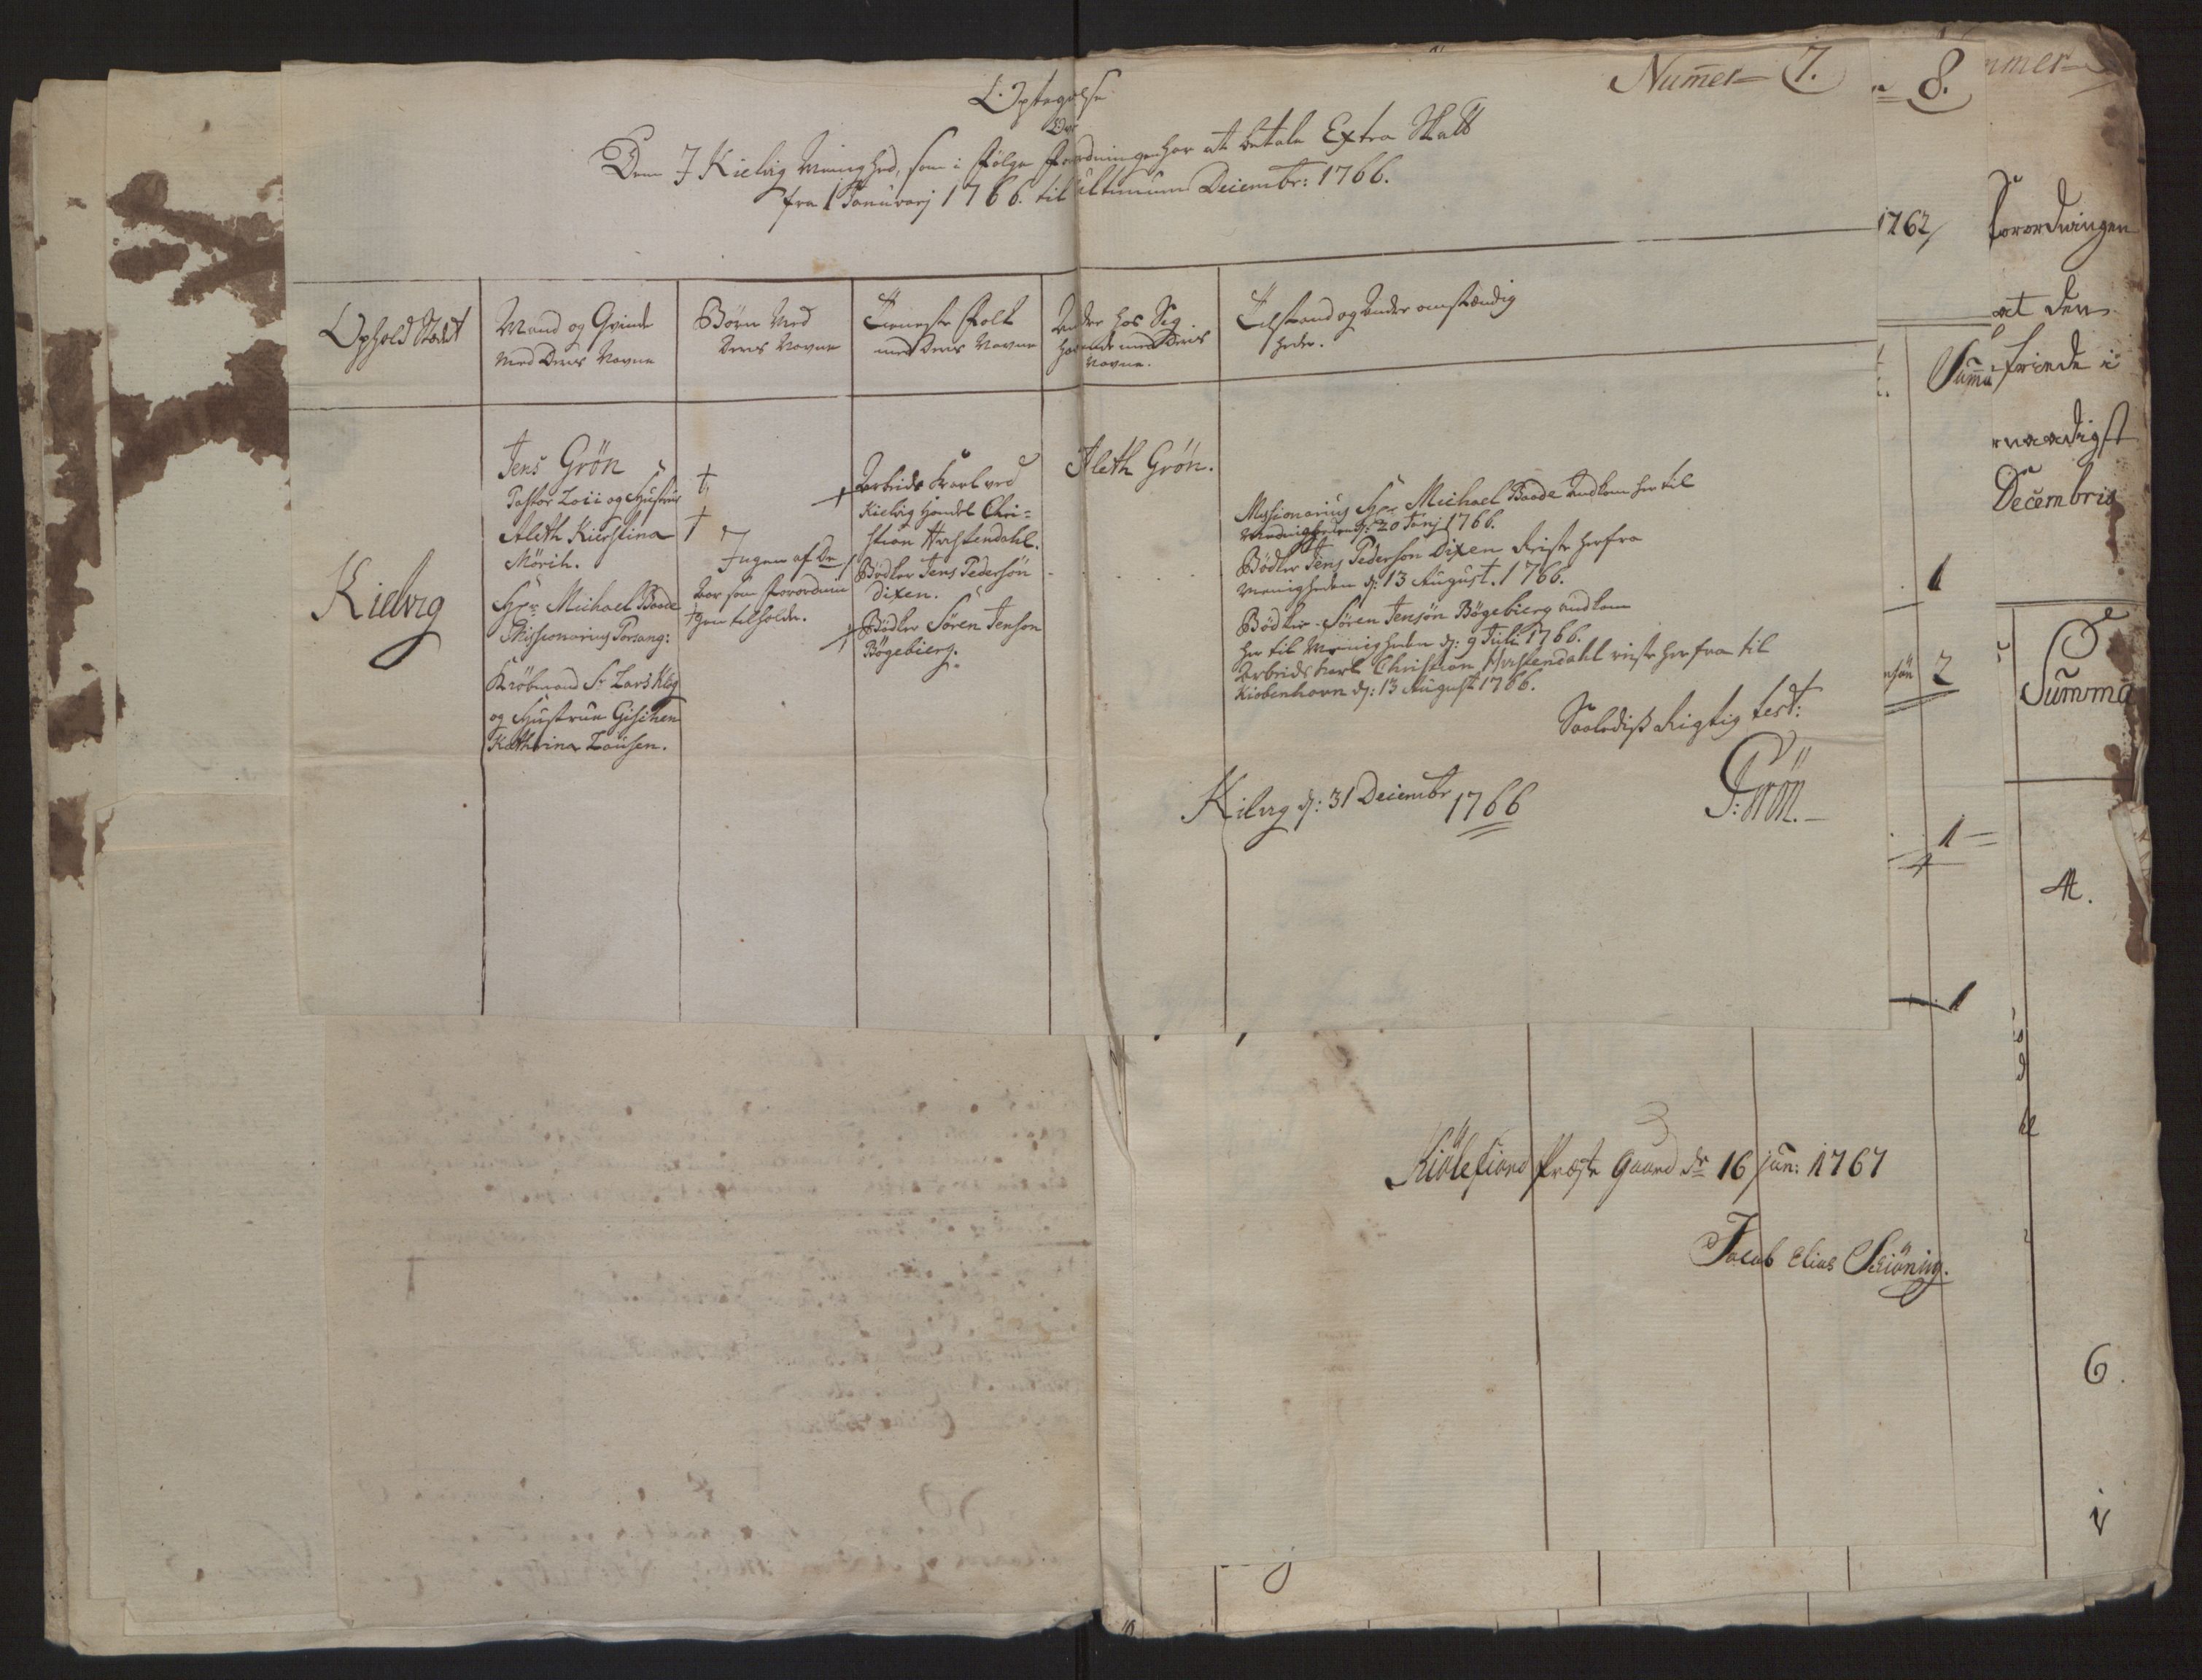 Numer 7.
Optegnelse
over
Dem J Kielvig Menighed, som i Følge Forordningen har at betale Extra Skatt
fra 1 Januvarj 1766. til ultimum Decembr: 1766.
Ophold Stædet
Mand og Qvinde
med Deris Navne
Børn Med
Deris Navne
Tieneste Folk
med Deris Navne
Andre hos Sig
havende med Deris
Navne.
Tilstand og Andre omstændig
heder.
Kielvig
Jens Grön
Pastor Loci og Hustrue
Aleth Kierstina
Mörch.
Hr. Michael Baade
Missionarius Porsang:
Kiöbmand Sr. Lars Klög
og Hustrue Gischen
Kathrina Lausen.
†
†
Ingen af De
Aar som Forordnin
gen tilholder.
Arbeids Karl ved
Kielvig Handel Chri-
stian Hastendahl.
Bödker Jens Pedersön
Dixen.
Bödker Sören Jenson
Bögebierg.
Aleth Grön.
Missionarius Hr. Michael Baade Andkom her til
Menigheden d: 20 Janj 1766.
Bödker Jens Pederson Dixen Reiste herfra
Menigheden d: 13 August. 1766.
Bödker Sören Jensön Bögebierg andkom
her til Menigheden d: 9 Juli 1766.
Arbeids karl Christian Hastendahl reiste herfra til
Kiobenhavn d: 13 August 1766.
Saaledis Rigtig test:
Kilvig d: 31 Decembr 1766
J: Grön.
8.
1762
Summa
1
2
1
1
Kiölefiord Præste Gaard dn 16 Jan: 1767
Jacob Elias Schiöning.
mmer
Forordningen
at den
friede i
naadigst
Decembris
Summa
4.
6.